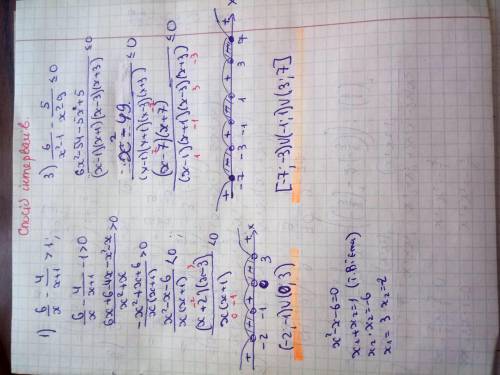 Спосіб інтервалів.
1) 6/x - 4/(x+1) > 1;
6/x - 4/(x+1) - 1 > 0
(6x+6-4x-x²-x)/(x²+x) > 0
(-x²+x+6)/(x(x+1)) > 0
(x²-x-6)/(x(x+1)) < 0;
((x+2)(x-3))/(x(x+1)) < 0
-2 3
0 -1
+ - + - + x
-2 -1 0 3
(-2;-1)∪(0;3)
x²-x-6=0
x₁+x₂=1 (т.Вієта)
x₁·x₂=-6
x₁=3 x₂=-2
3) 6/(x²-1) - 5/(x²-9) ≤ 0
(6x²-54-5x²+5)/((x-1)(x+1)(x-3)(x+3)) ≤ 0
(x²-49)/((x-1)(x+1)(x-3)(x+3)) ≤ 0
((x-7)(x+7))/((x-1)(x+1)(x-3)(x+3)) ≤ 0
7 -7
1 -1 3 -3
+ - + - + - + x
-7 -3 -1 1 3 7
[-7;-3)∪(-1;1)∪(3;7]